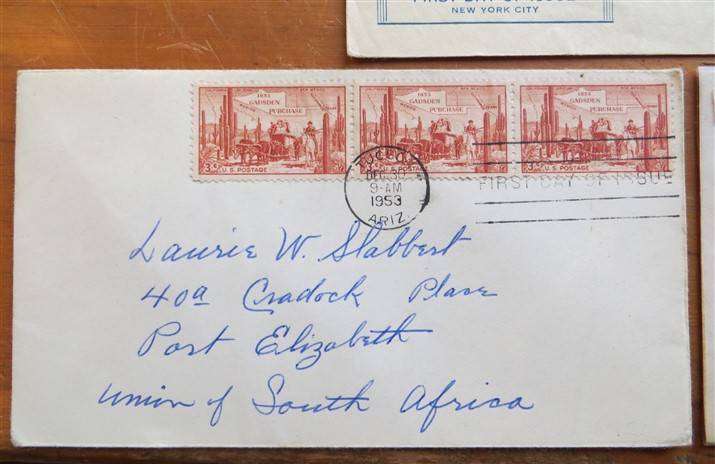 FIRST DAY OF ISSUE
NEW YORK CITY
1853
GADSDEN
PURCHASE
3¢ U.S. POSTAGE
1853
GADSDEN
PURCHASE
3¢ U.S. POSTAGE
1853
GADSDEN
PURCHASE
3¢ U.S. POSTAGE
TUCSON
DEC 30
9-AM
1953
ARIZ.
FIRST DAY OF ISSUE
Laurie W. Slabbert
40a Cradock Place
Port Elizabeth
Union of South Africa